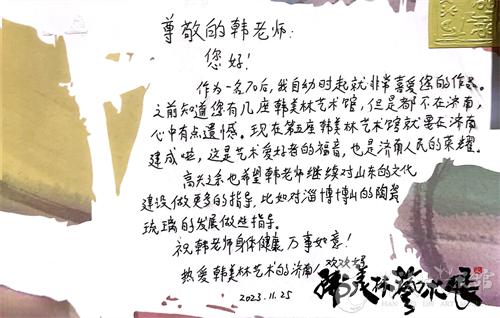 尊敬的韩老师:
您好!
作为一名70后,我自幼时起就非常喜爱您的作品。
之前知道您有几座韩美林艺术馆,但是都不在济南,
心中有点遗憾。现在第五座韩美林艺术馆就要在济南
建成啦,这是艺术爱好者的福音,也是济南人民的荣耀。
高兴之余也希望韩老师继续对山东的文化
建设做更多的指导,比如对淄博博山的陶瓷
琉璃的发展做些指导。
祝韩老师身体健康,万事如意!
热爱韩美林艺术的济南人 欢欢
2023.11.25
韩美林艺术展